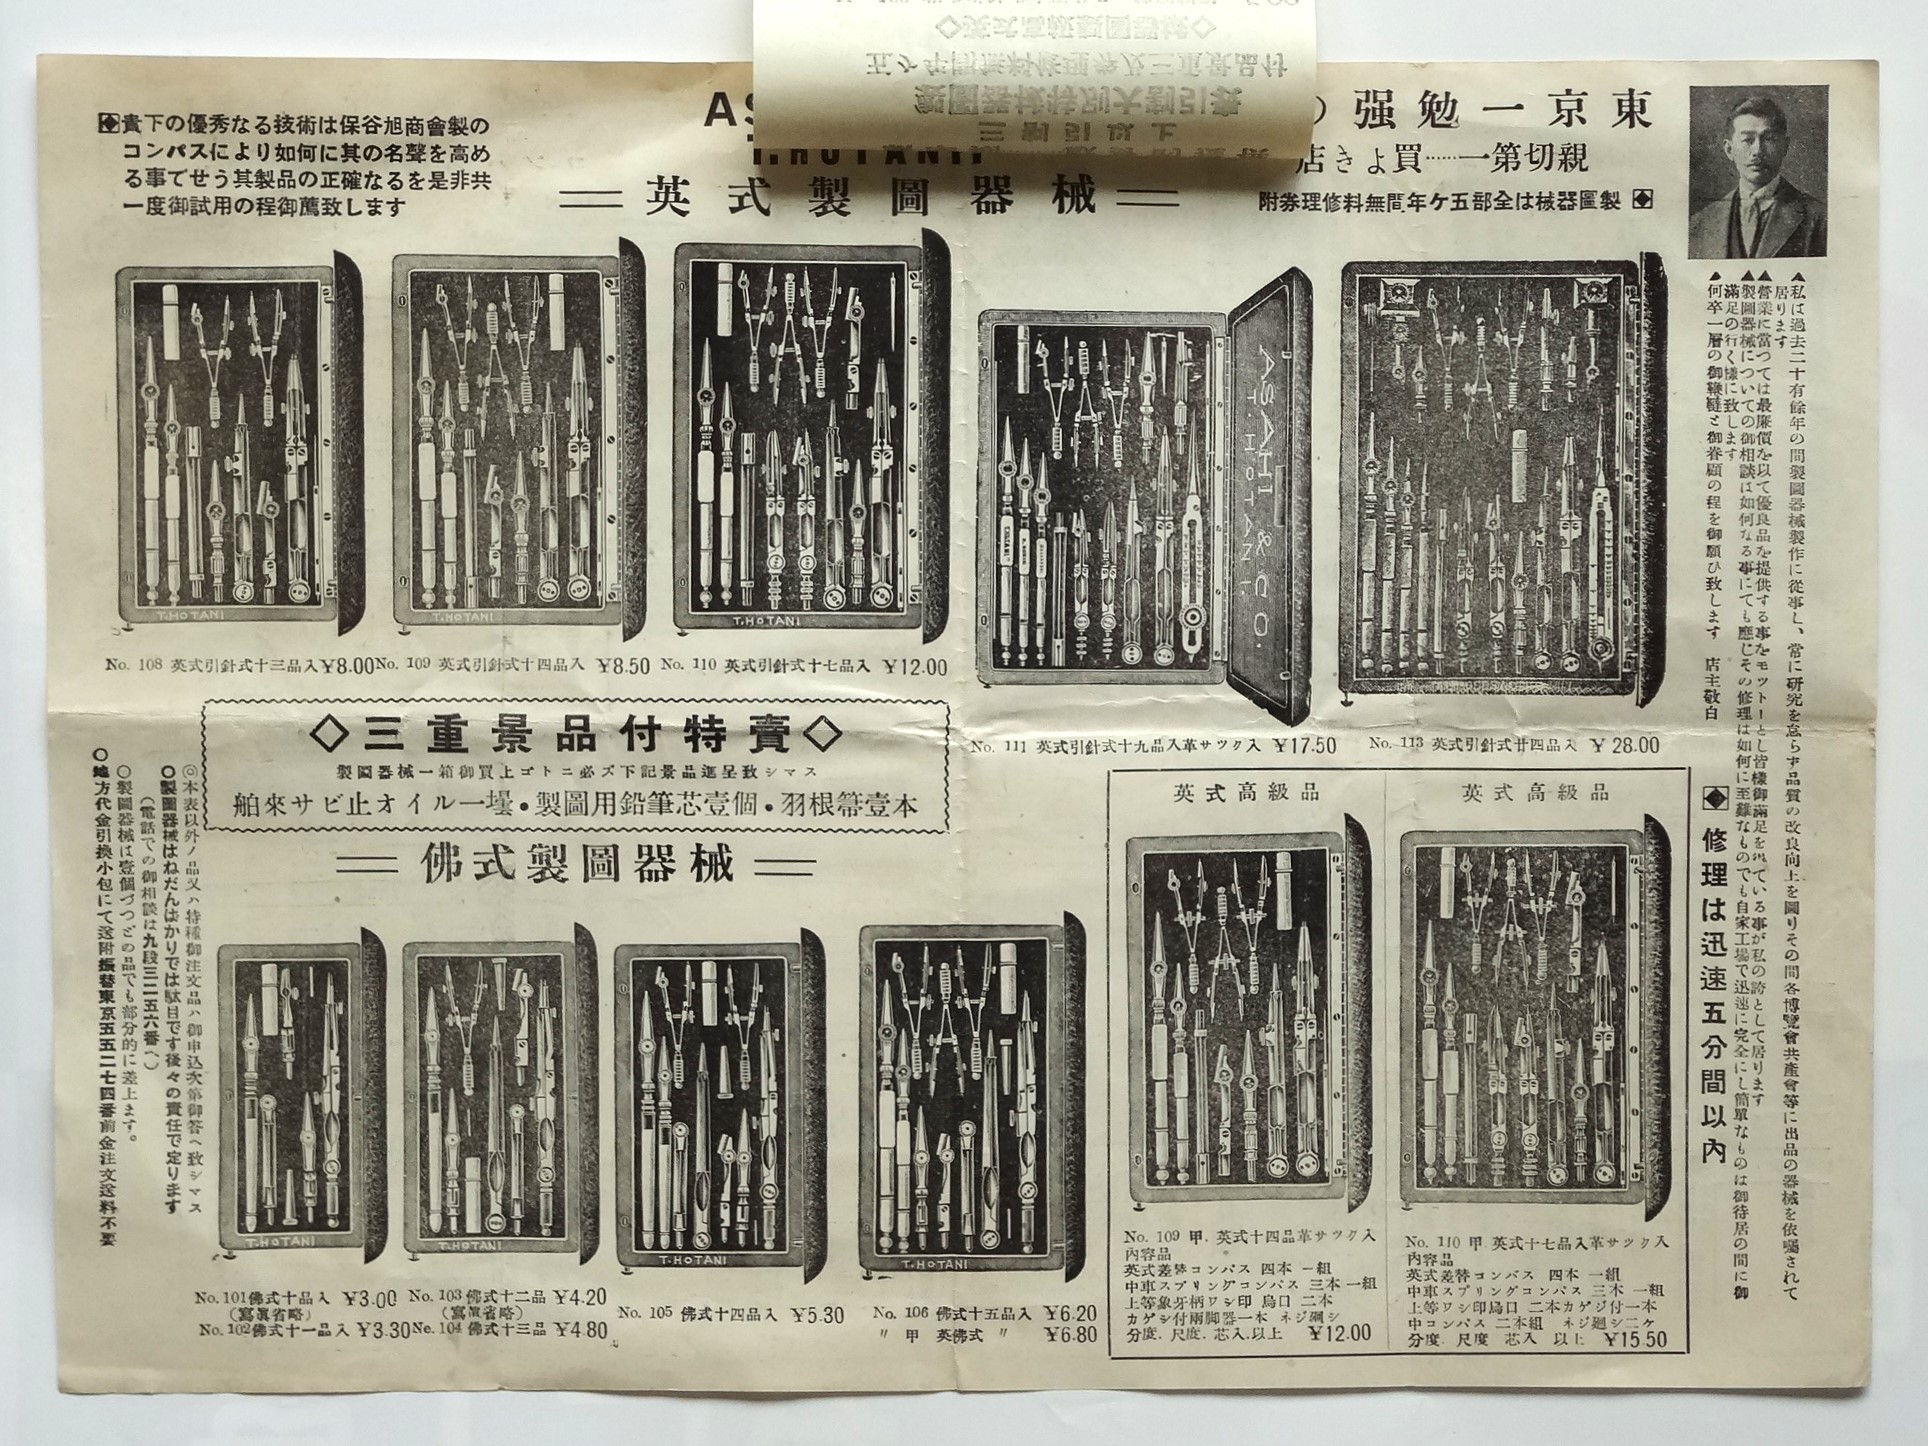 貴下の優秀なる技術は保谷旭商會製の
コンパスにより如何に其の名聲を高め
る事でせう其製品の正確なるを是非共
一度御試用の程御薦致します
AS
T.HOTANI
英式製圖器械
東京一勉强の
親切第一……買よき店
製圖器械は全部五ケ年間無料修理券附
私は過去二十有餘年の間製圖器械製作に從事し、常に研究を怠らず品質の改良向上を圖りその間各博覽會共產會等に出品の器械を依囑されて
居ります
營業に當つては最廉價を以て優良品を提供する事をモツトーとし皆樣御滿足を得ている事が私の誇として居ります
製圖器械についての御相談は如何なる事にても應じその修理は如何に至難なものでも自家工場で迅速に完全にし簡單なものは御待居の間に御
滿足の行く樣に致します
何卒一層の御鞭韃と御眷顧の程を御願ひ致します 店主敬白
修理は迅速五分間以內
T.HOTANI
T.HOTANI
T.HOTANI
ASAHI & CO.
T. HOTANI.
No. 108 英式引針式十三品入 ¥8.00
No. 109 英式引針式十四品入 ¥8.50
No. 110 英式引針式十七品入 ¥12.00
No. 111 英式引針式十九品入革サツク入 ¥17.50
No. 113 英式引針式廿四品入 ¥28.00
◇三重景品付特賣◇
製圖器械一箱御買上ゴトニ必ズ下記景品進呈致シマス
舶來サビ止オイル一壜・製圖用鉛筆芯壹個・羽根箒壹本
佛式製圖器械
◎本表以外ノ品又ハ特種御注文品ハ御申込次第御答ヘ致シマス
○製圖器械はねだんばかりでは駄目です後々の責任で定ります
(電話での御相談は九段三二五六番へ)
○製圖器械は壹個づつどの品でも部分的に差上ます。
○地方代金引換小包にて送附振替東京五五二七四番前金注文送料不要
T.HOTANI
T.HOTANI
T.HOTANI
T.HOTANI
No. 101 佛式十品入 ¥3.00
(寫眞省略)
No. 102 佛式十一品入 ¥3.30
No. 103 佛式十二品 ¥4.20
(寫眞省略)
No. 104 佛式十三品 ¥4.80
No. 105 佛式十四品入 ¥5.30
No. 106 佛式十五品入 ¥6.20
〃 甲 英佛式 〃 ¥6.80
英式高級品
英式高級品
No. 109 甲. 英式十四品革サツク入
內容品
英式差替コンパス 四本 一組
中車スプリングコンパス 三本一組
上等象牙柄ワシ印 烏口 二本
カゲシ付兩脚器一本 ネジ廻シ
分度. 尺度. 芯入. 以上 ¥12.00
No. 110 甲. 英式十七品入革サツク入
內容品
英式差替コンパス 四本 一組
中車スプリングコンパス 三本 一組
上等ワシ印烏口 二本カゲジ付一本
中コンパス 二本組 ネジ廻シ二ケ
分度. 尺度 芯入 以上 ¥15.50